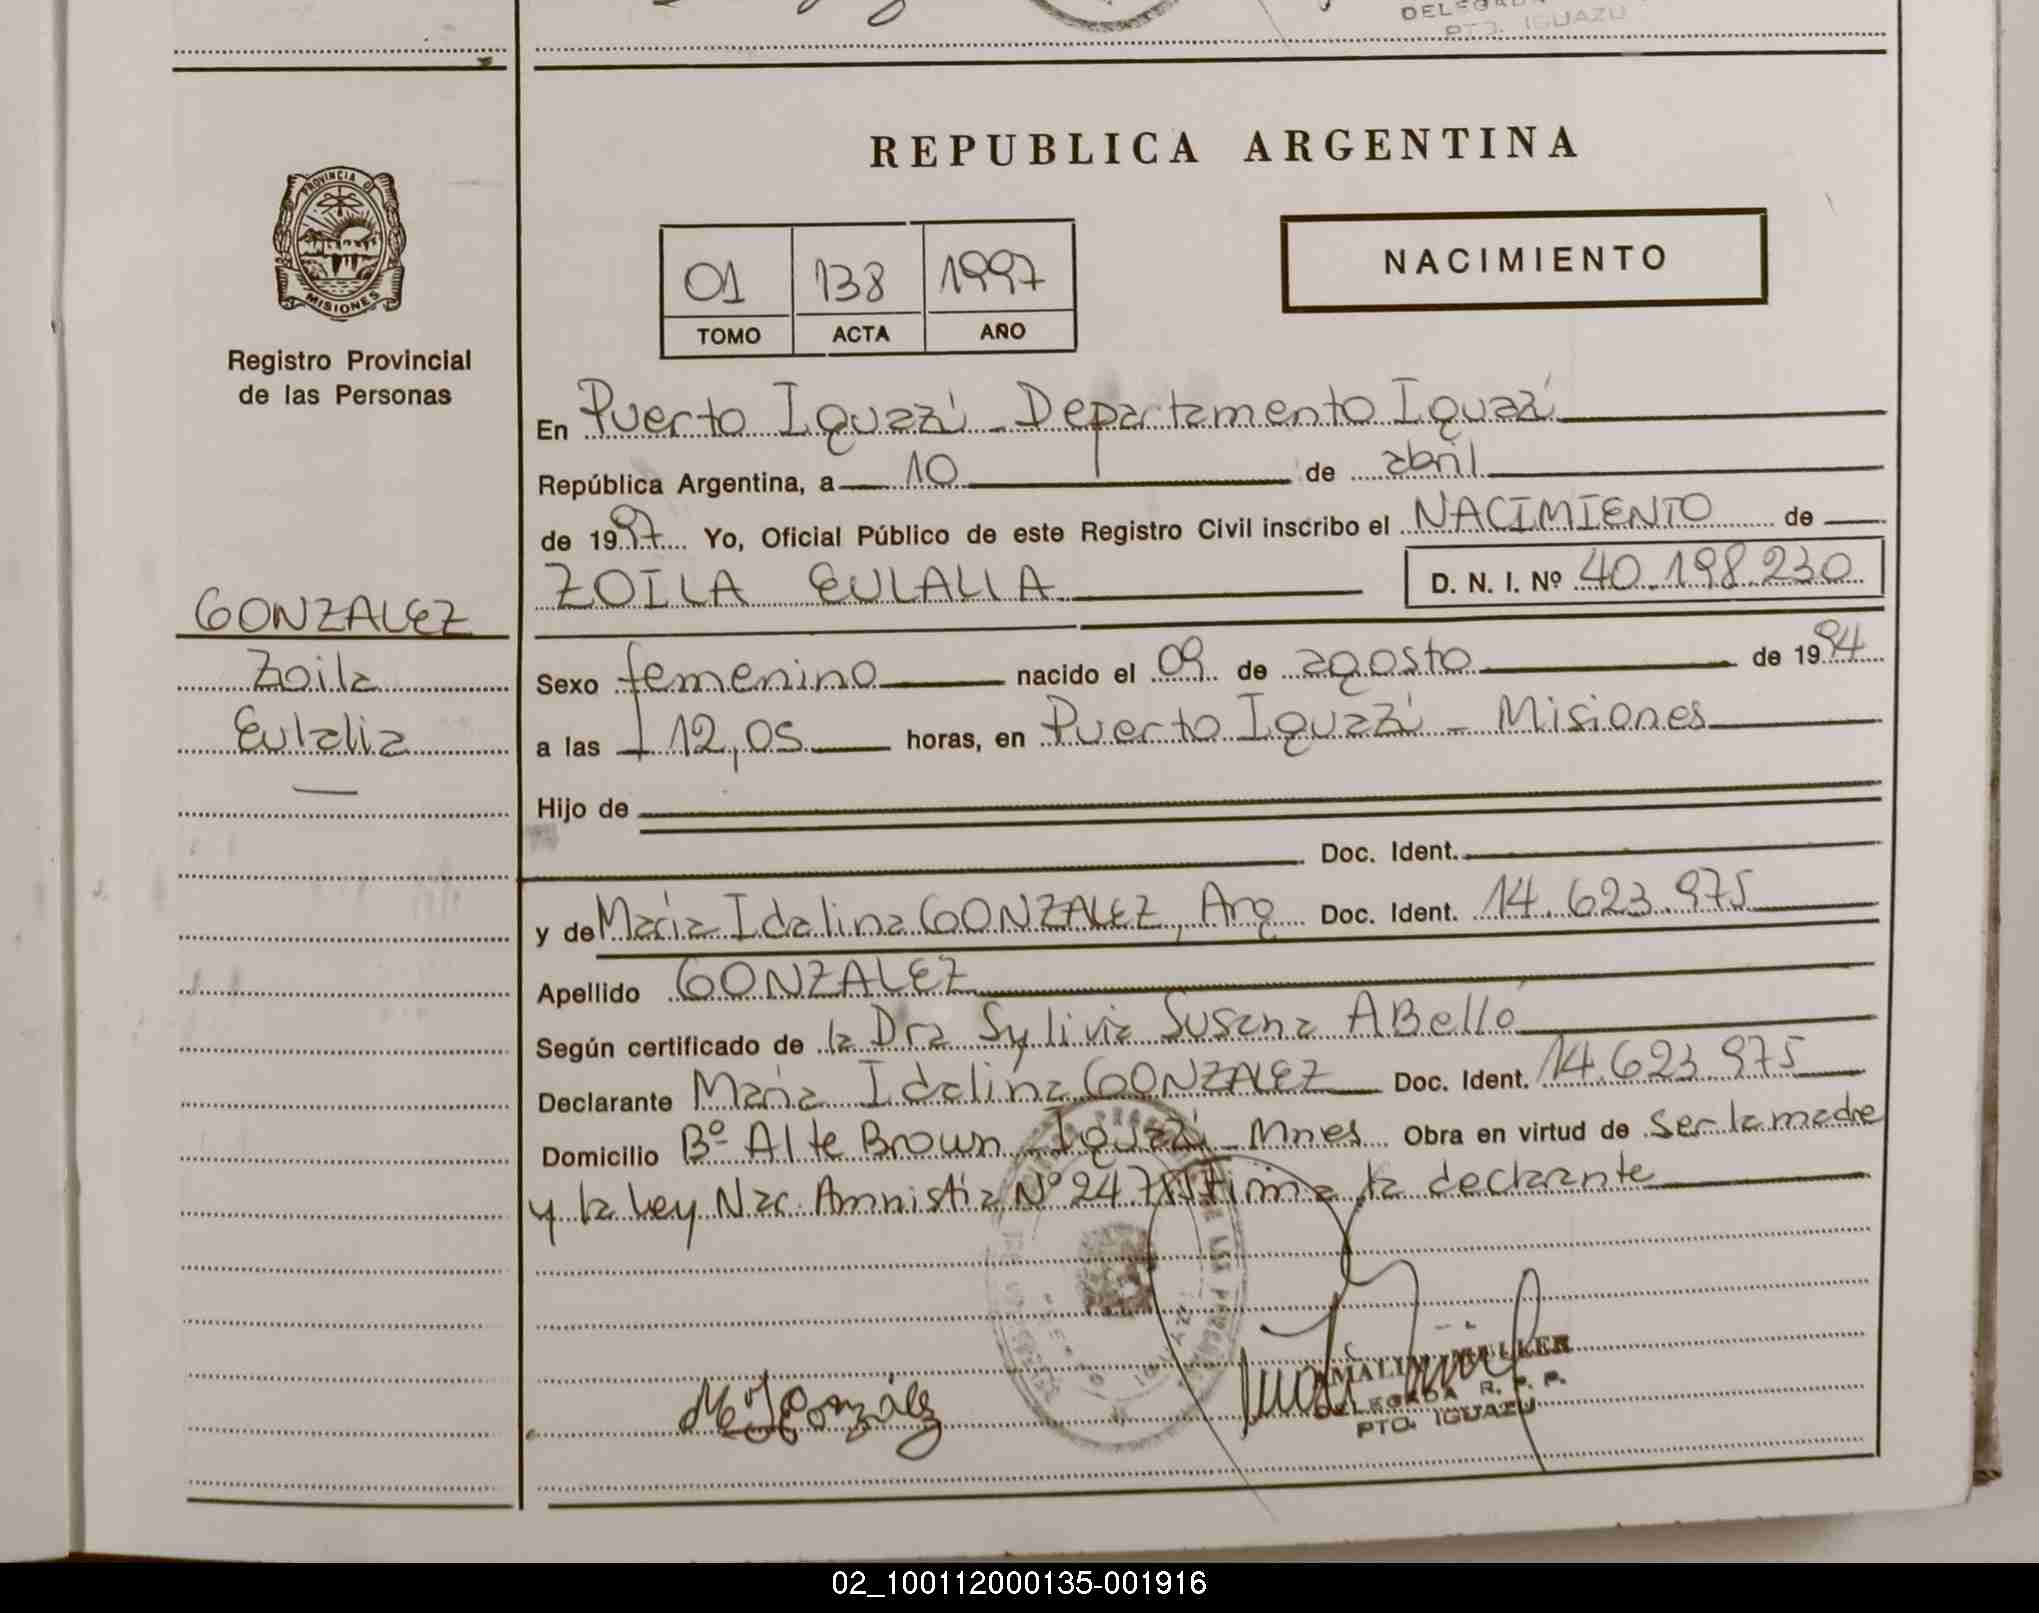 DELEGADA
PTO. IGUAZU
PROVINCIA DE
MISIONES
Registro Provincial
de las Personas
GONZALEZ
Zoila
Eulalia
REPUBLICA ARGENTINA
01 138 1997
TOMO ACTA AÑO
NACIMIENTO
En Puerto Iguazú - Departamento Iguazú
República Argentina, a 10 de abril
de 1997 Yo, Oficial Público de este Registro Civil inscribo el NACIMIENTO de
ZOILA EULALIA D. N. I. Nº 40.198.230
Sexo femenino nacido el 09 de agosto de 1994
a las 12,05 horas, en Puerto Iguazú - Misiones
Hijo de
Doc. Ident.
y de Maria Idalina GONZALEZ, Arg Doc. Ident. 14.623.975
Apellido GONZALEZ
Según certificado de la Dra Sylivia Susana ABelló
Declarante Maria Idalina GONZALEZ Doc. Ident. 14.623.975
Domicilio Bº Alte Brown Iguazú - Mnes Obra en virtud de ser la madre
y la Ley Nac. Amnistia Nº Firma la declarante
M I González
MULLER
DELEGADA R. P. P.
PTO. IGUAZU
02_100112000135-001916